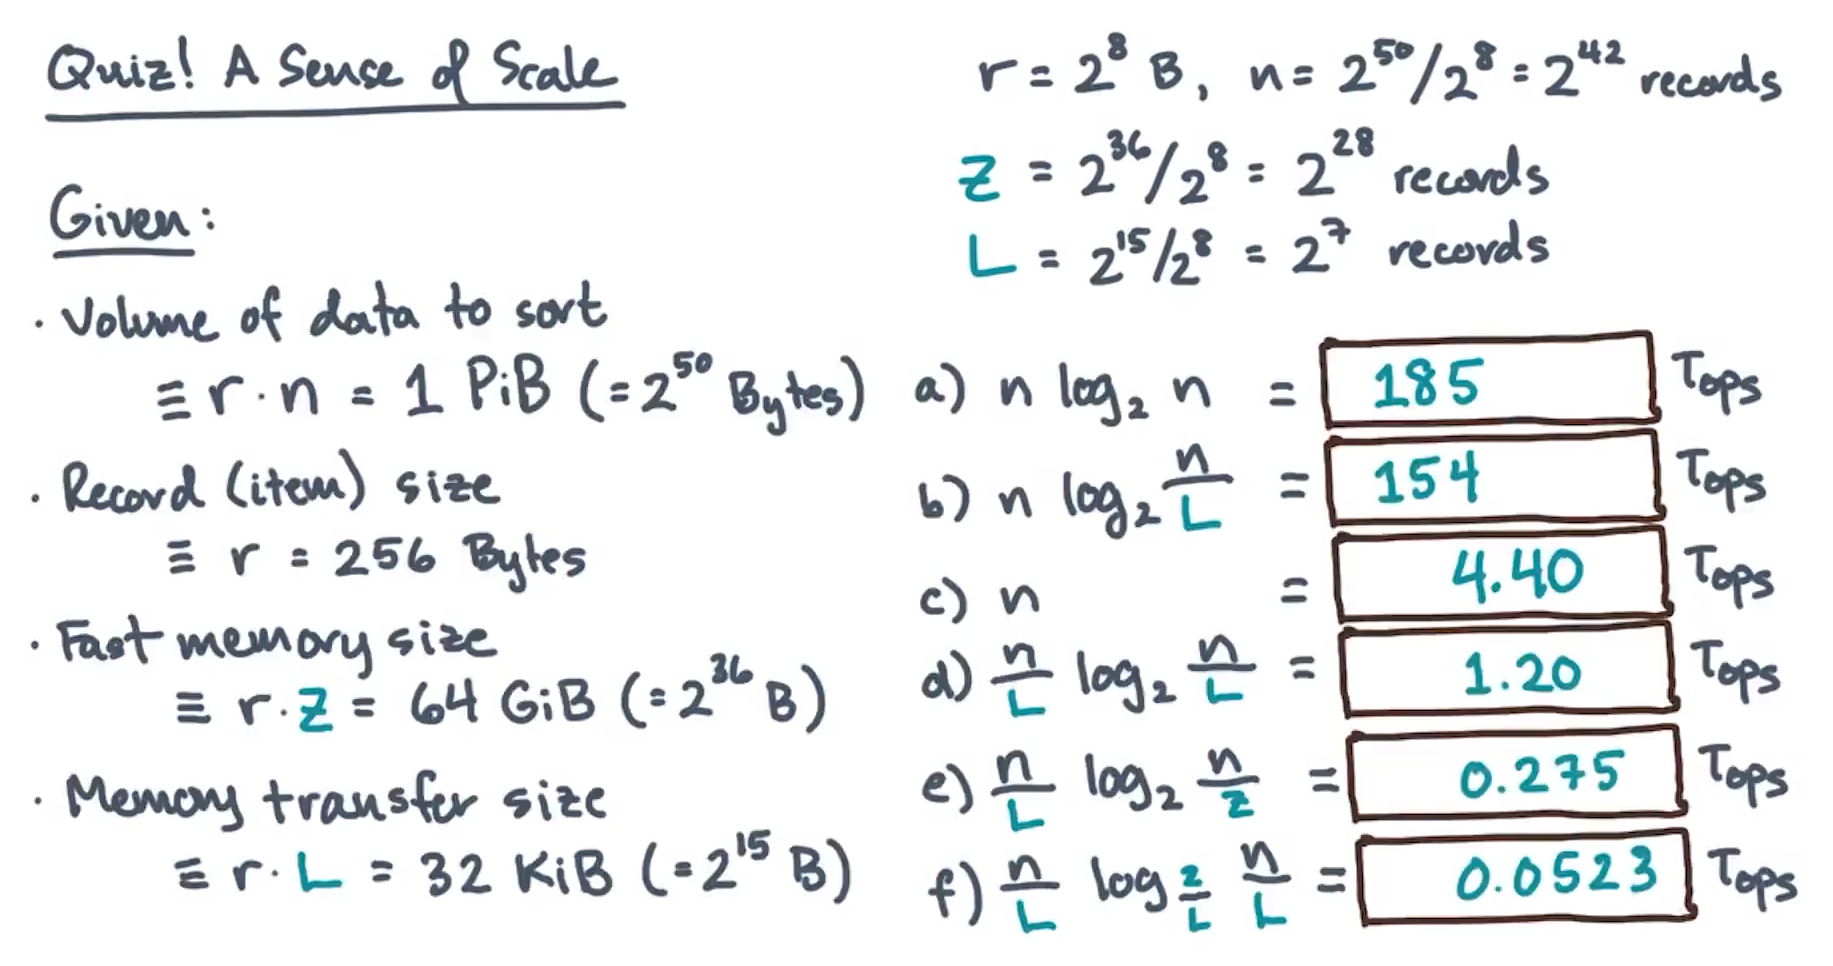 Quiz! A Sense of Scale
Given:
· Volume of data to sort
≡ r · n = 1 PiB (= 2^50 Bytes)
· Record (item) size
≡ r = 256 Bytes
· Fast memory size
≡ r · Z = 64 GiB (= 2^36 B)
· Memory transfer size
≡ r · L = 32 KiB (= 2^15 B)
r = 2^8 B, n = 2^50/2^8 = 2^42 records
Z = 2^36/2^8 = 2^28 records
L = 2^15/2^8 = 2^7 records
a) n log₂ n = 185 Tops
b) n log₂ n/L = 154 Tops
c) n = 4.40 Tops
d) n/L log₂ n/L = 1.20 Tops
e) n/L log₂ n/Z = 0.275 Tops
f) n/L log_{Z/L} n/L = 0.0523 Tops